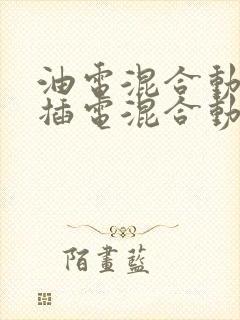 油電混合動
插電混合動
陌畫藍